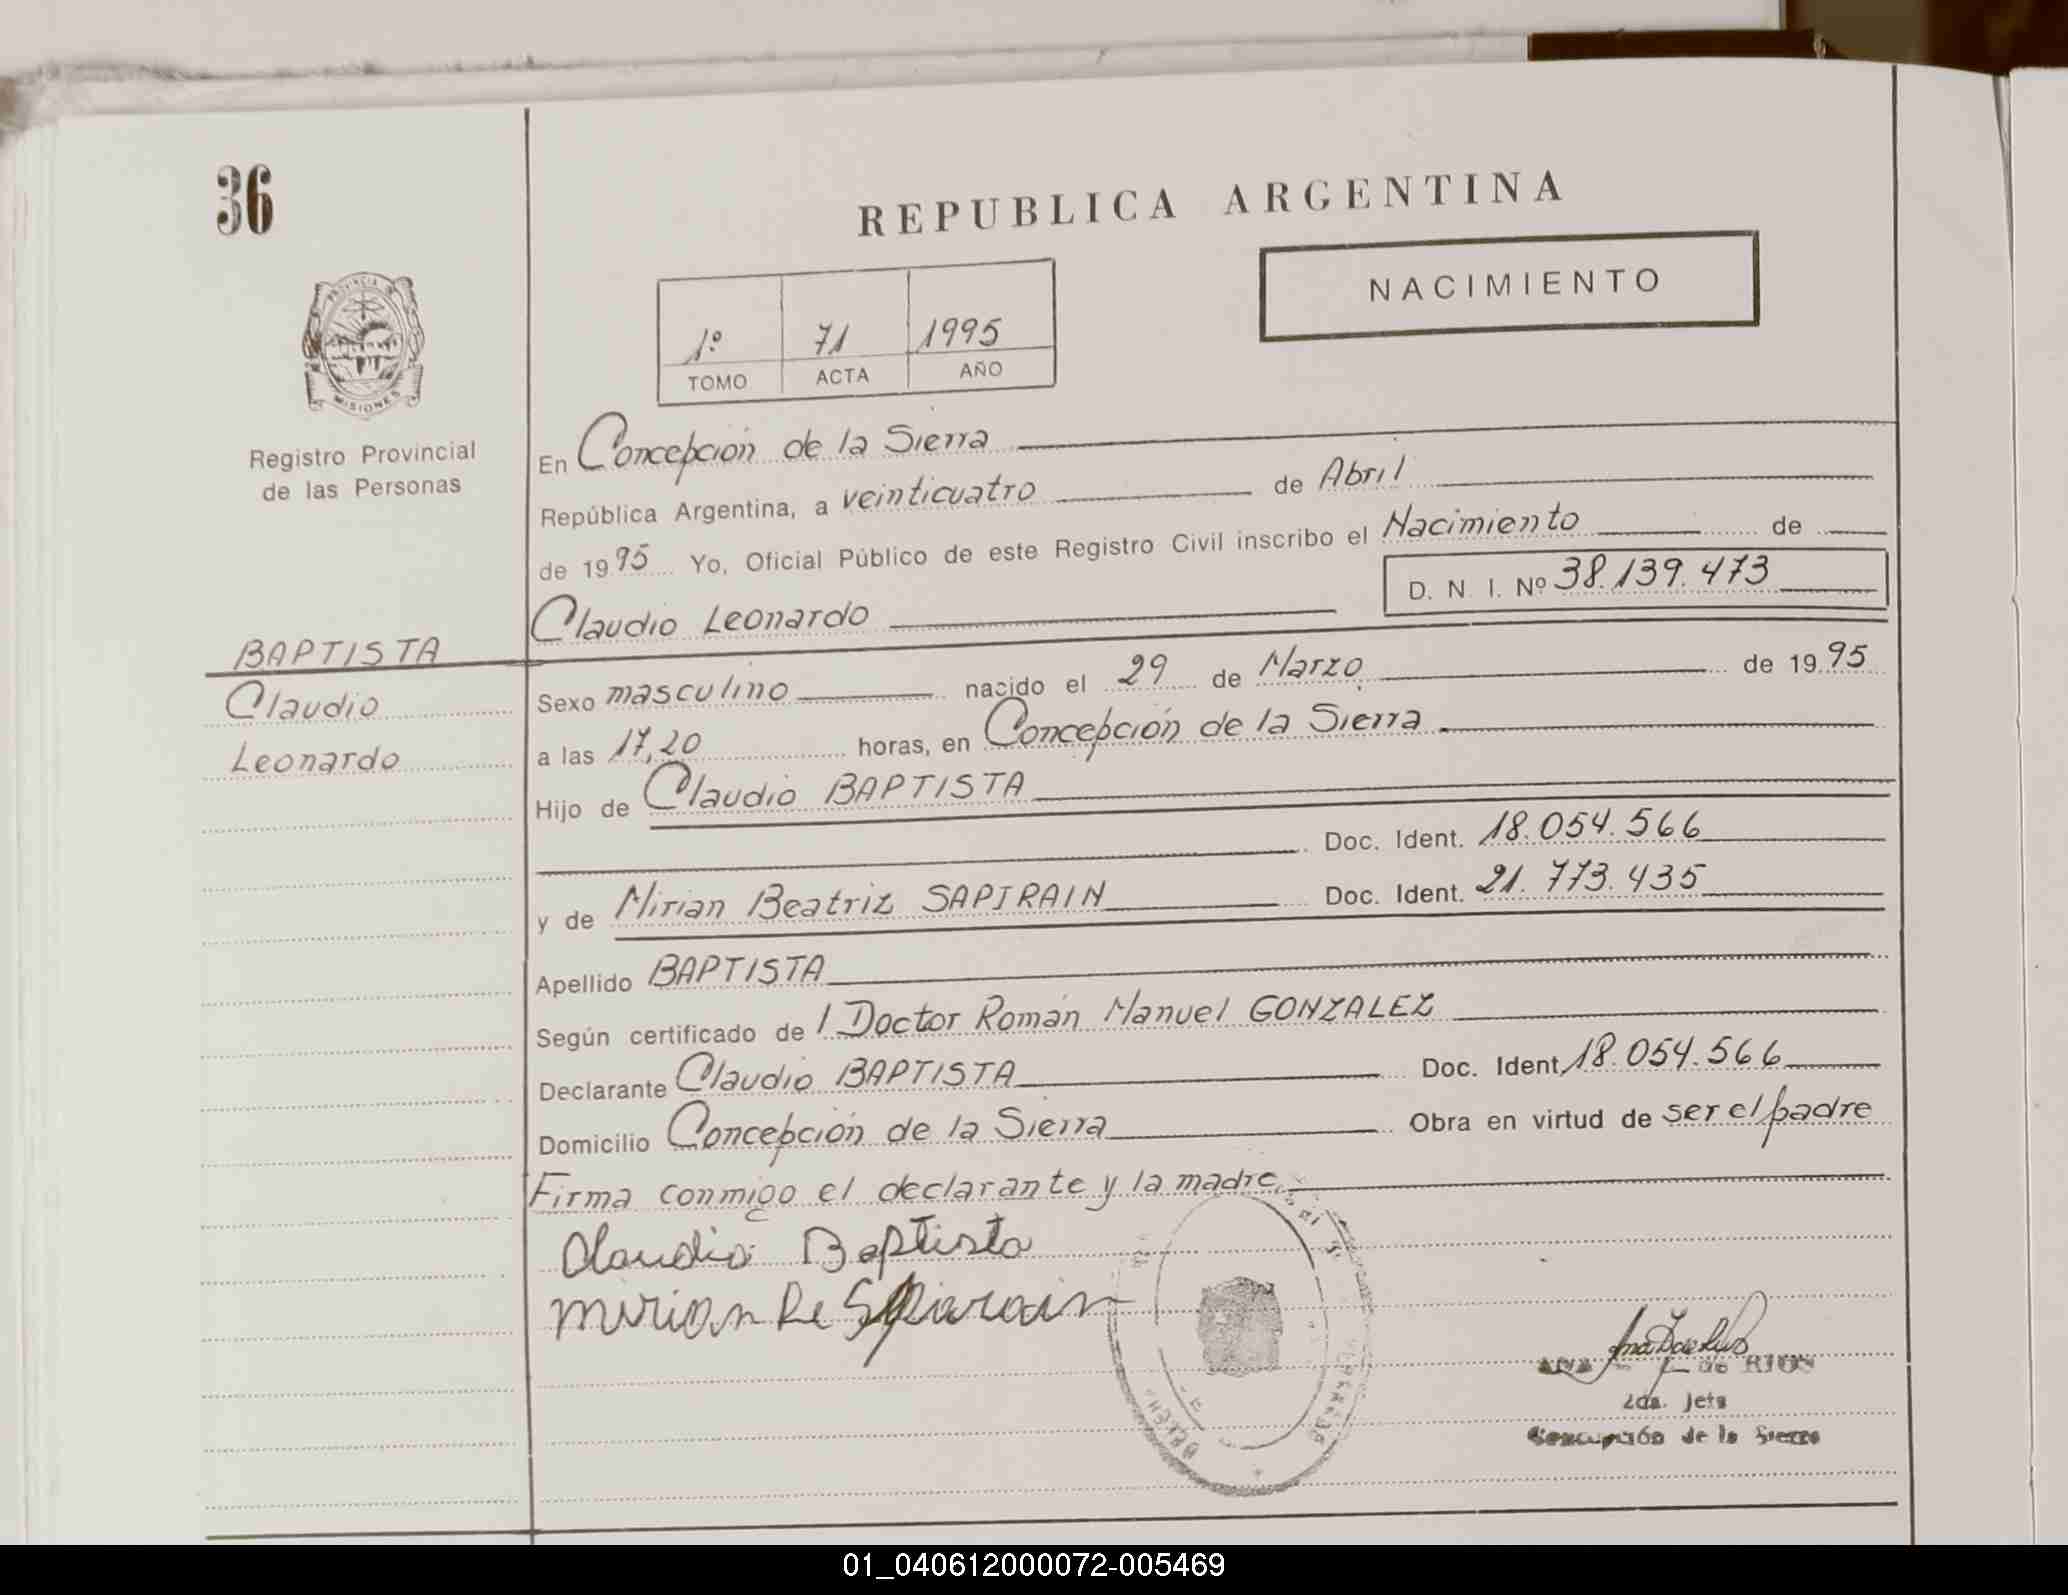 36
REPUBLICA ARGENTINA
NACIMIENTO
1º 71 1995
TOMO ACTA AÑO
PROVINCIA DE
MISIONES
Registro Provincial
de las Personas
En Concepción de la Sierra
República Argentina, a veinticuatro de Abril
de 1995 Yo, Oficial Público de este Registro Civil inscribo el Nacimiento de
D. N. I. Nº 38.139.473
Claudio Leonardo
BAPTISTA
Claudio
Leonardo
Sexo masculino nacido el 29 de Marzo de 1995
a las 17,20 horas, en Concepción de la Sierra
Hijo de Claudio BAPTISTA
Doc. Ident. 18.054.566
y de Mirian Beatriz SAPIRAIN Doc. Ident. 21.773.435
Apellido BAPTISTA
Según certificado de l Doctor Román Manuel GONZALEZ
Declarante Claudio BAPTISTA Doc. Ident. 18.054.566
Domicilio Concepción de la Sierra Obra en virtud de ser el padre
Firma conmigo el declarante y la madre.
Claudio Baptista
Mirian Be Sapirain
de RIOS
2da. Jefa
Concepción de la Sierra
01_040612000072-005469